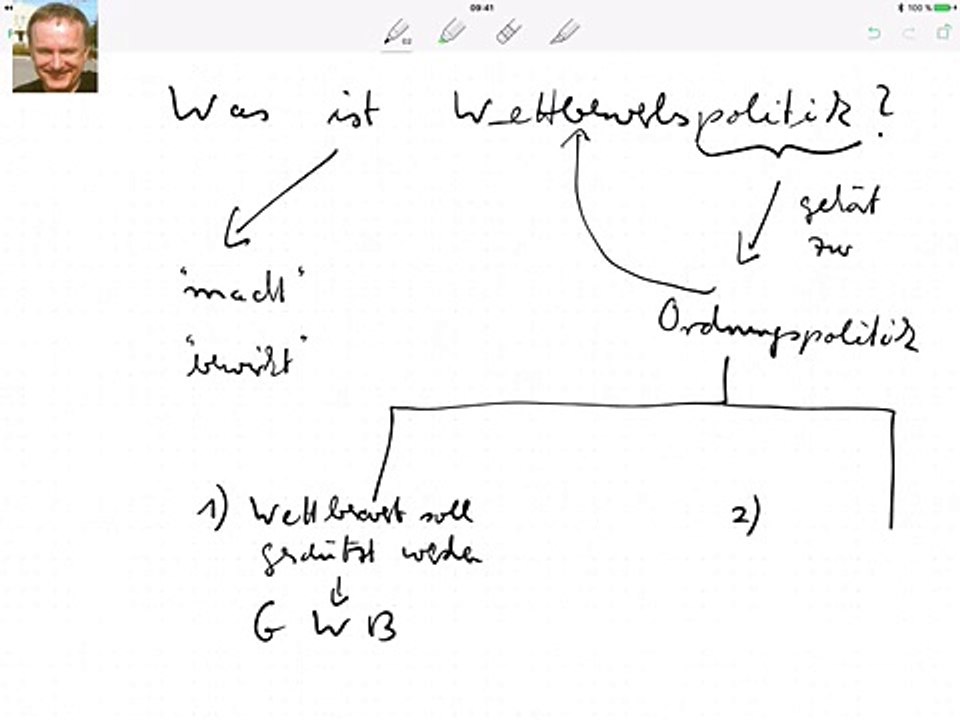 09:41
100 %
Was ist Wettbewerbspolitik?
gehört
zur
"macht"
Ordnungspolitik
"bewirkt"
1) Wettbewerb soll
geschützt werden
2)
G W B